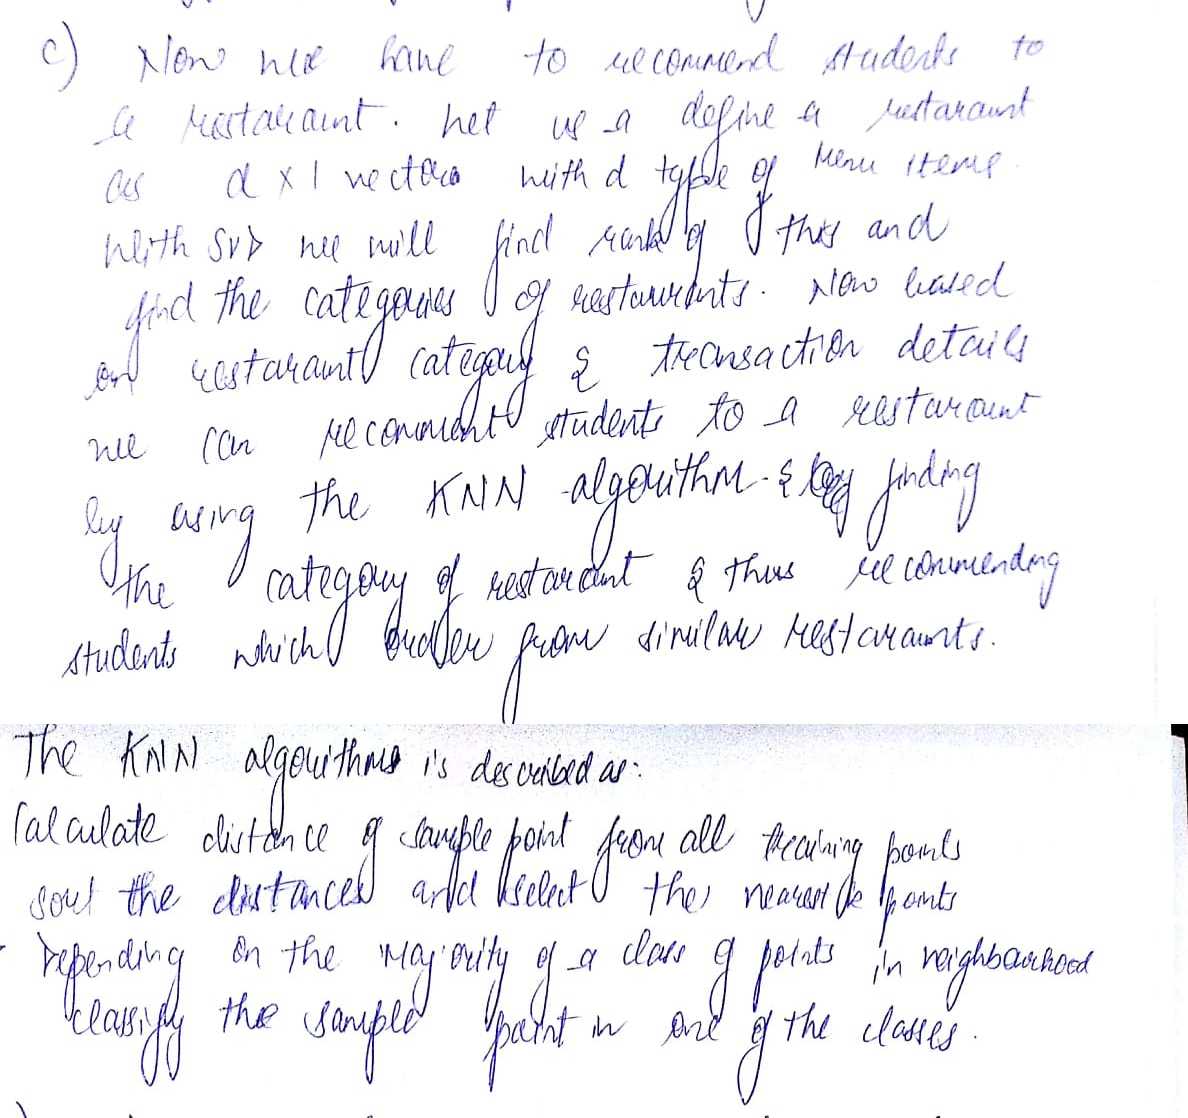 c) Now we have to recommend students to
a restaraunt. Let us a define a restaraunt
as d x 1 vector with d type of Menu items.
With SVD we will find rank of this and
find the categories of restaurants. Now based
on restaraunt category & transaction details
we can recomment students to a restaraunt
by using the KNN algorithm. & by finding
the category of restaraunt & thus recommending
students which order from similar restaraunts.
The KNN algorithms is described as:
Calculate distance of sample point from all training points
sort the distances and select the nearest k points
Depending on the majority of a class of points in neighbourhood
classify the sample point in one of the classes.